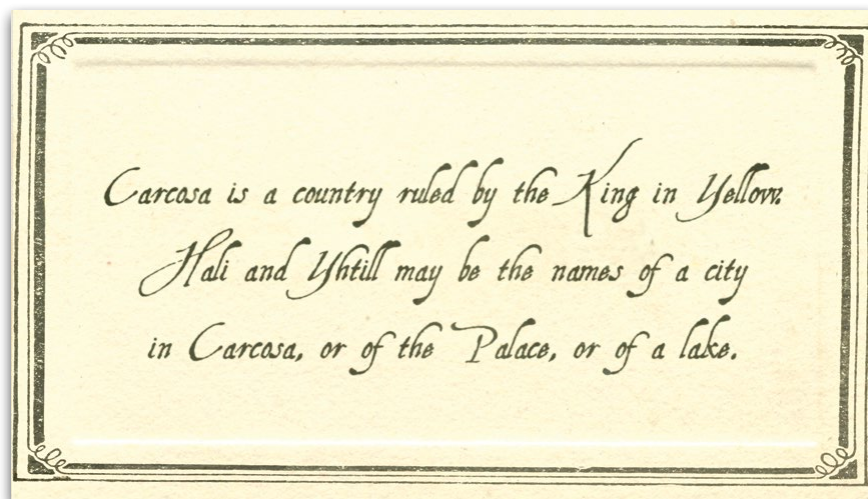 Carcosa is a country ruled by the King in Yellow.
Hali and Yhtill may be the names of a city
in Carcosa, or of the Palace, or of a lake.